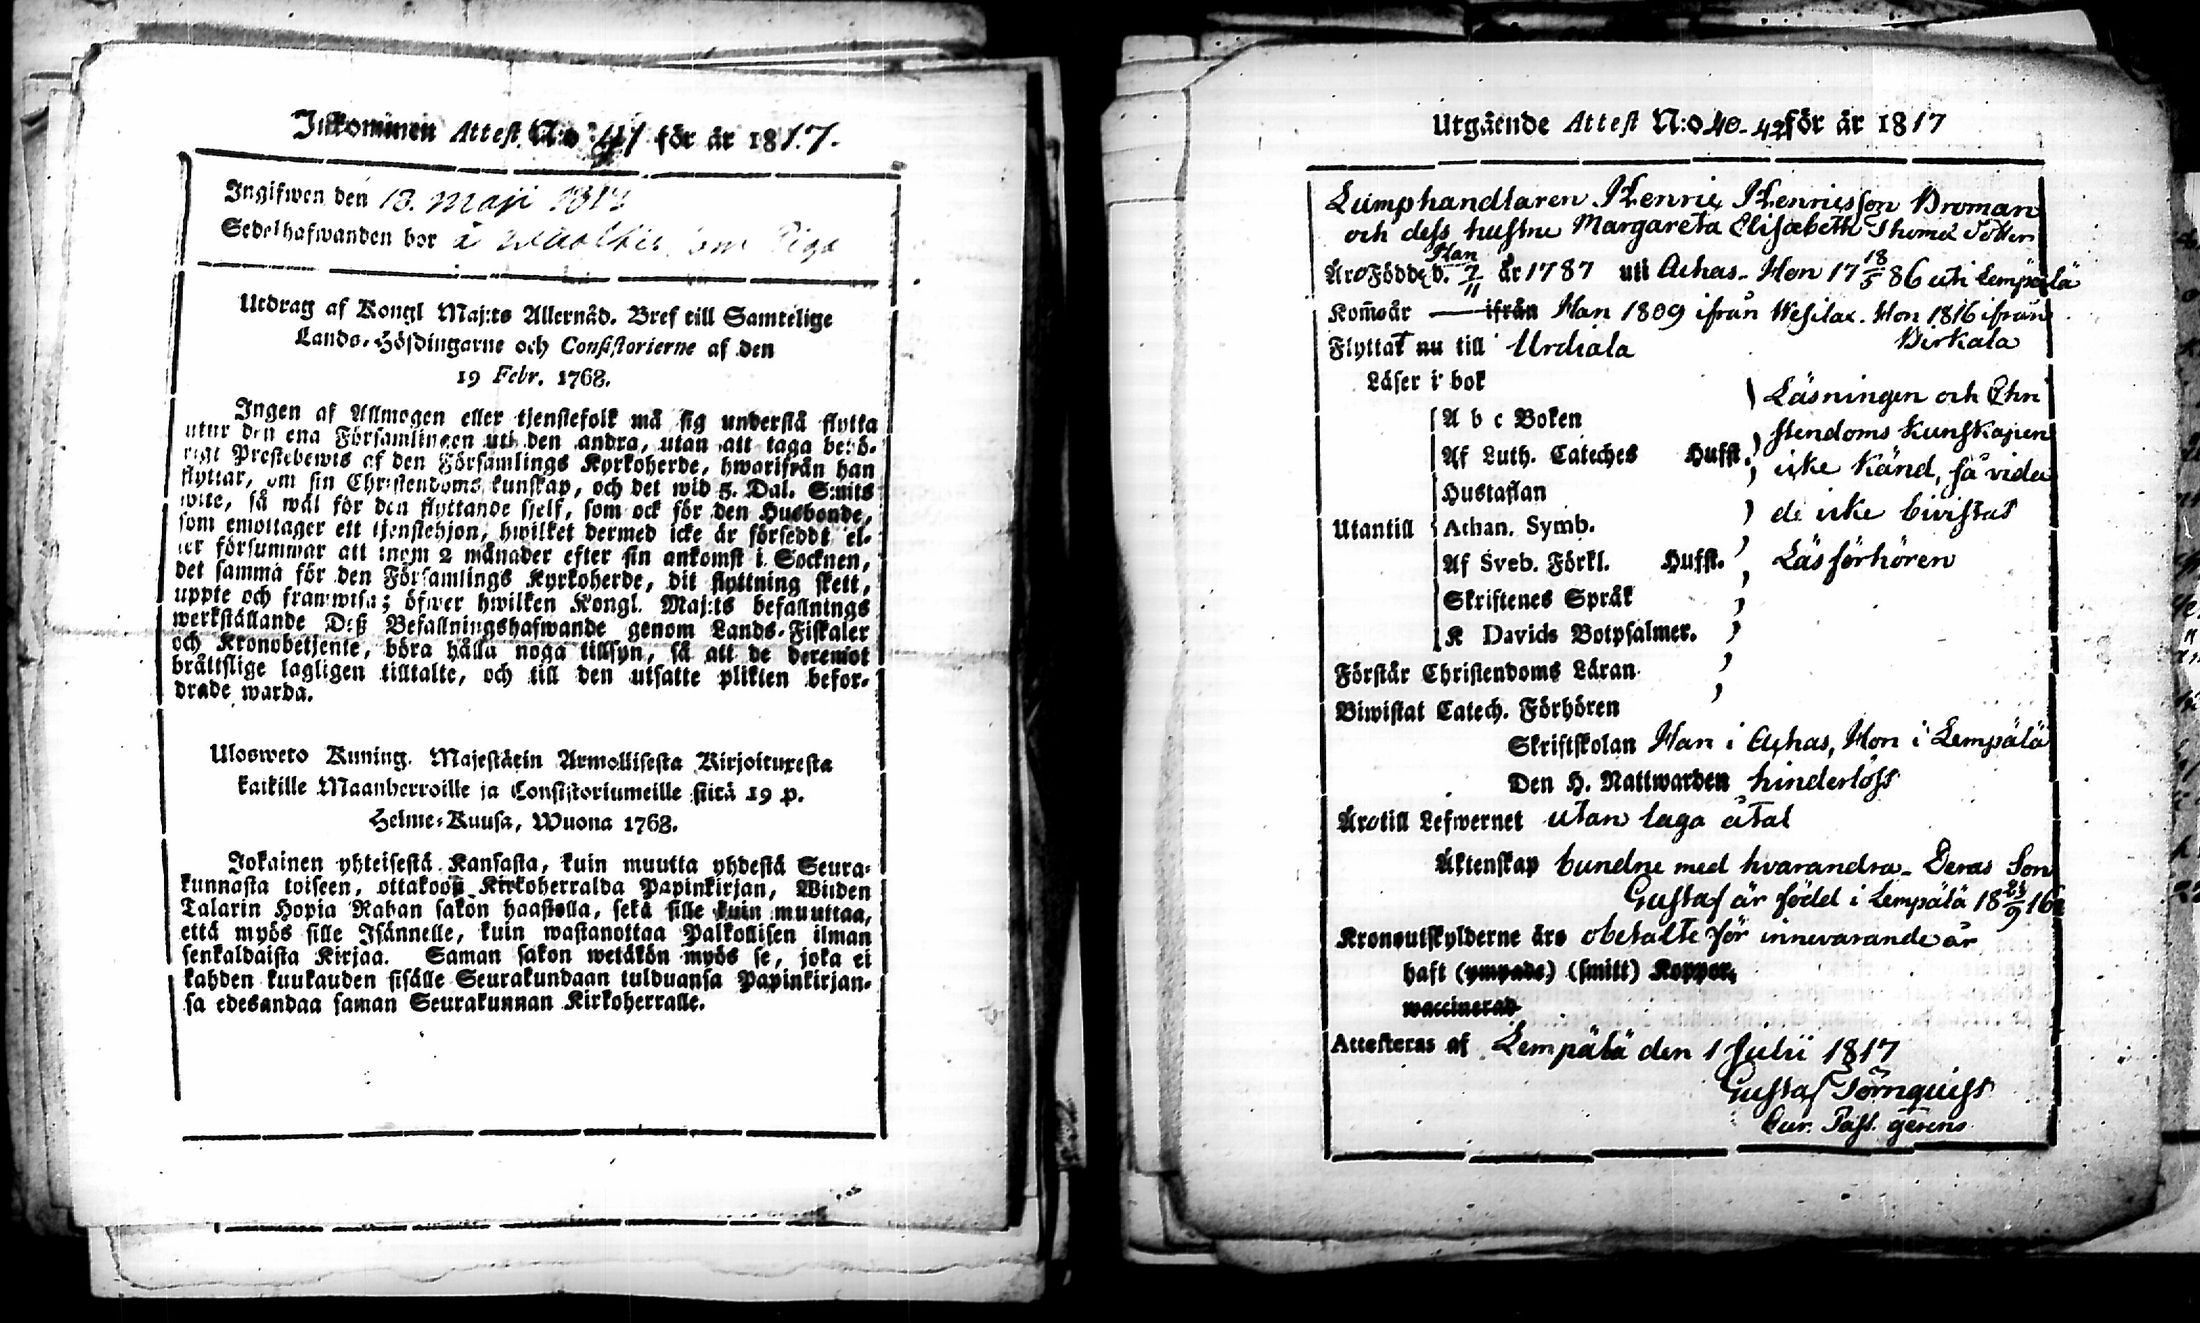 Inkommen Attest N:o 41 för år 1817.
Ingifwen den 13. Maji 1817
Sedelhafwanden bor å som Piga
Utdrag af Kongl Maj:ts Allernåd. Bref till Samtelige
Lands-Höfdingarne och Consistorierne af den
19 Febr. 1768.
Ingen af Allmogen eller tjenstefolk må sig understå flytta
utur den ena Församlingen uti den andra, utan att taga behö-
rigt Prestebewis af den Församlings Kyrkoherde, hwarifrån han
flyttar, om sin Christendoms kunskap, och det wid 5. Dal. S:mits
wite, så wäl för den flyttande sjelf, som ock för den Husbonde,
som emottager ett tjenstehjon, hwilket dermed icke är försedt el-
ler försummar att inom 2 månader efter sin ankomst i Socknen,
det samma för den Församlings Kyrkoherde, dit flyttning skett,
uppte och framwisa; öfwer hwilken Kongl. Maj:ts befallnings
werkställande D:ß Befallningshafwande genom Lands-Fiskaler
och Kronobetjente, böra hålla noga tillsyn, så att de deremot
bråttslige lagligen tilltalte, och till den utsatte plikten befor-
drade warda.
Uloswето Kuning. Majestätin Armollisesta Kirjoituxesta
kaikille Maanherroille ja Consistoriumeille siitä 19 p.
Helme-Kuusa, Wuona 1768.
Jokainen yhteisestä Kansasta, kuin muutta yhdestä Seura-
kunnasta toiseen, ottakoon Kirkoherralda Papinkirjan, Wiiden
Talarin Hopia Rahan sakon haastolla, sekä sille kuin muuttaa,
että myös sille Isännelle, kuin wastanottaa Palkollisen ilman
senkaldaista Kirjaa. Saman sakon wetäkön myös se, joka ei
kahden kuukauden sisälle Seurakundaan tulduansa Papinkirjan-
sa edesandaa saman Seurakunnan Kirkoherralle.
Utgående Attest N:o 40-42 för år 1817
Lumphandlaren Henric Henricsson Broman
och dess hustru Margareta Elisabeth Thomæ Dotter
Äro Födde d. Han 7/11 år 1787 uti Achas. Hon 17 18/5 86 uti Lempälä
Kom̃o år — ifrån Han 1809 ifrån Wesilax. Hon 1816 ifrån
Birkala
Flyttat nu till Urdiala
Läser i bok
Läsningen och Chri
A b c Boken
stendoms Kunskapen
Af Luth. Cateches Hufst.
icke känd, så vida
Hustaflan
de icke bivistat
Utantill Athan. Symb.
Af Sveb. Förkl. Hufst.
Läsförhören
Skriftenes Språk
K Davids Botpsalmer.
Förstår Christendoms Läran
Biwistat Catech. Förhören
Skriftskolan Han i Achas, Hon i Lempälä
Den H. Nattwarden hinderlöst
Äro till Lefwernet utan laga åtal
Äktenskap bundne med hvarandra. Deras Son
Gustaf är född i Lempälä 18 24/9 16
Kronoutskylderne äro obetalte för innevarande år
haft (ympade) (smitt) Koppor,
waccinerad
Attesteras af Lempälä den 1 Julii 1817
Gustaf Törnquist
Cur. Past. gerens